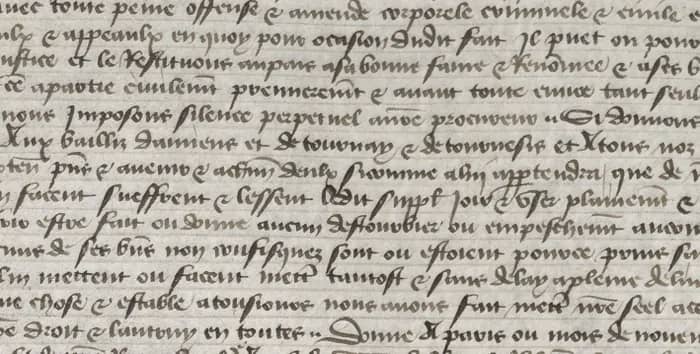 avec toute peine offense & amende corporele criminele & civile
& appeaulx en quoy pour ocasion dudit fait Il puet ou pouroit
Justice et le Restituons au pais a sa bonne fame & Renomee & a ses b
partie civilemt premieremt & avant toute euvre tant seul
nous Imposons silence perpetuel a nre procureur Si donnons
Aux bailliz damiens et de tournay & de tournesis et A tous noz
pns & avenir & a chun deulx si comme a lui appartendra que de n
facent sueffrent & lessent ledit suppl Joir & user plainemt &
estre fait ou donne aucun destourbier ou empeschemt au con
de ses bns non confisquez sont ou estoient pource prins sa
lui mettent ou facent mett tantost & sans delay a pleine deliu
chose & estable a tousiours nous avons fait mett nre seel a ce
droit & lautruy en toutes Donne A paris ou mois de nove